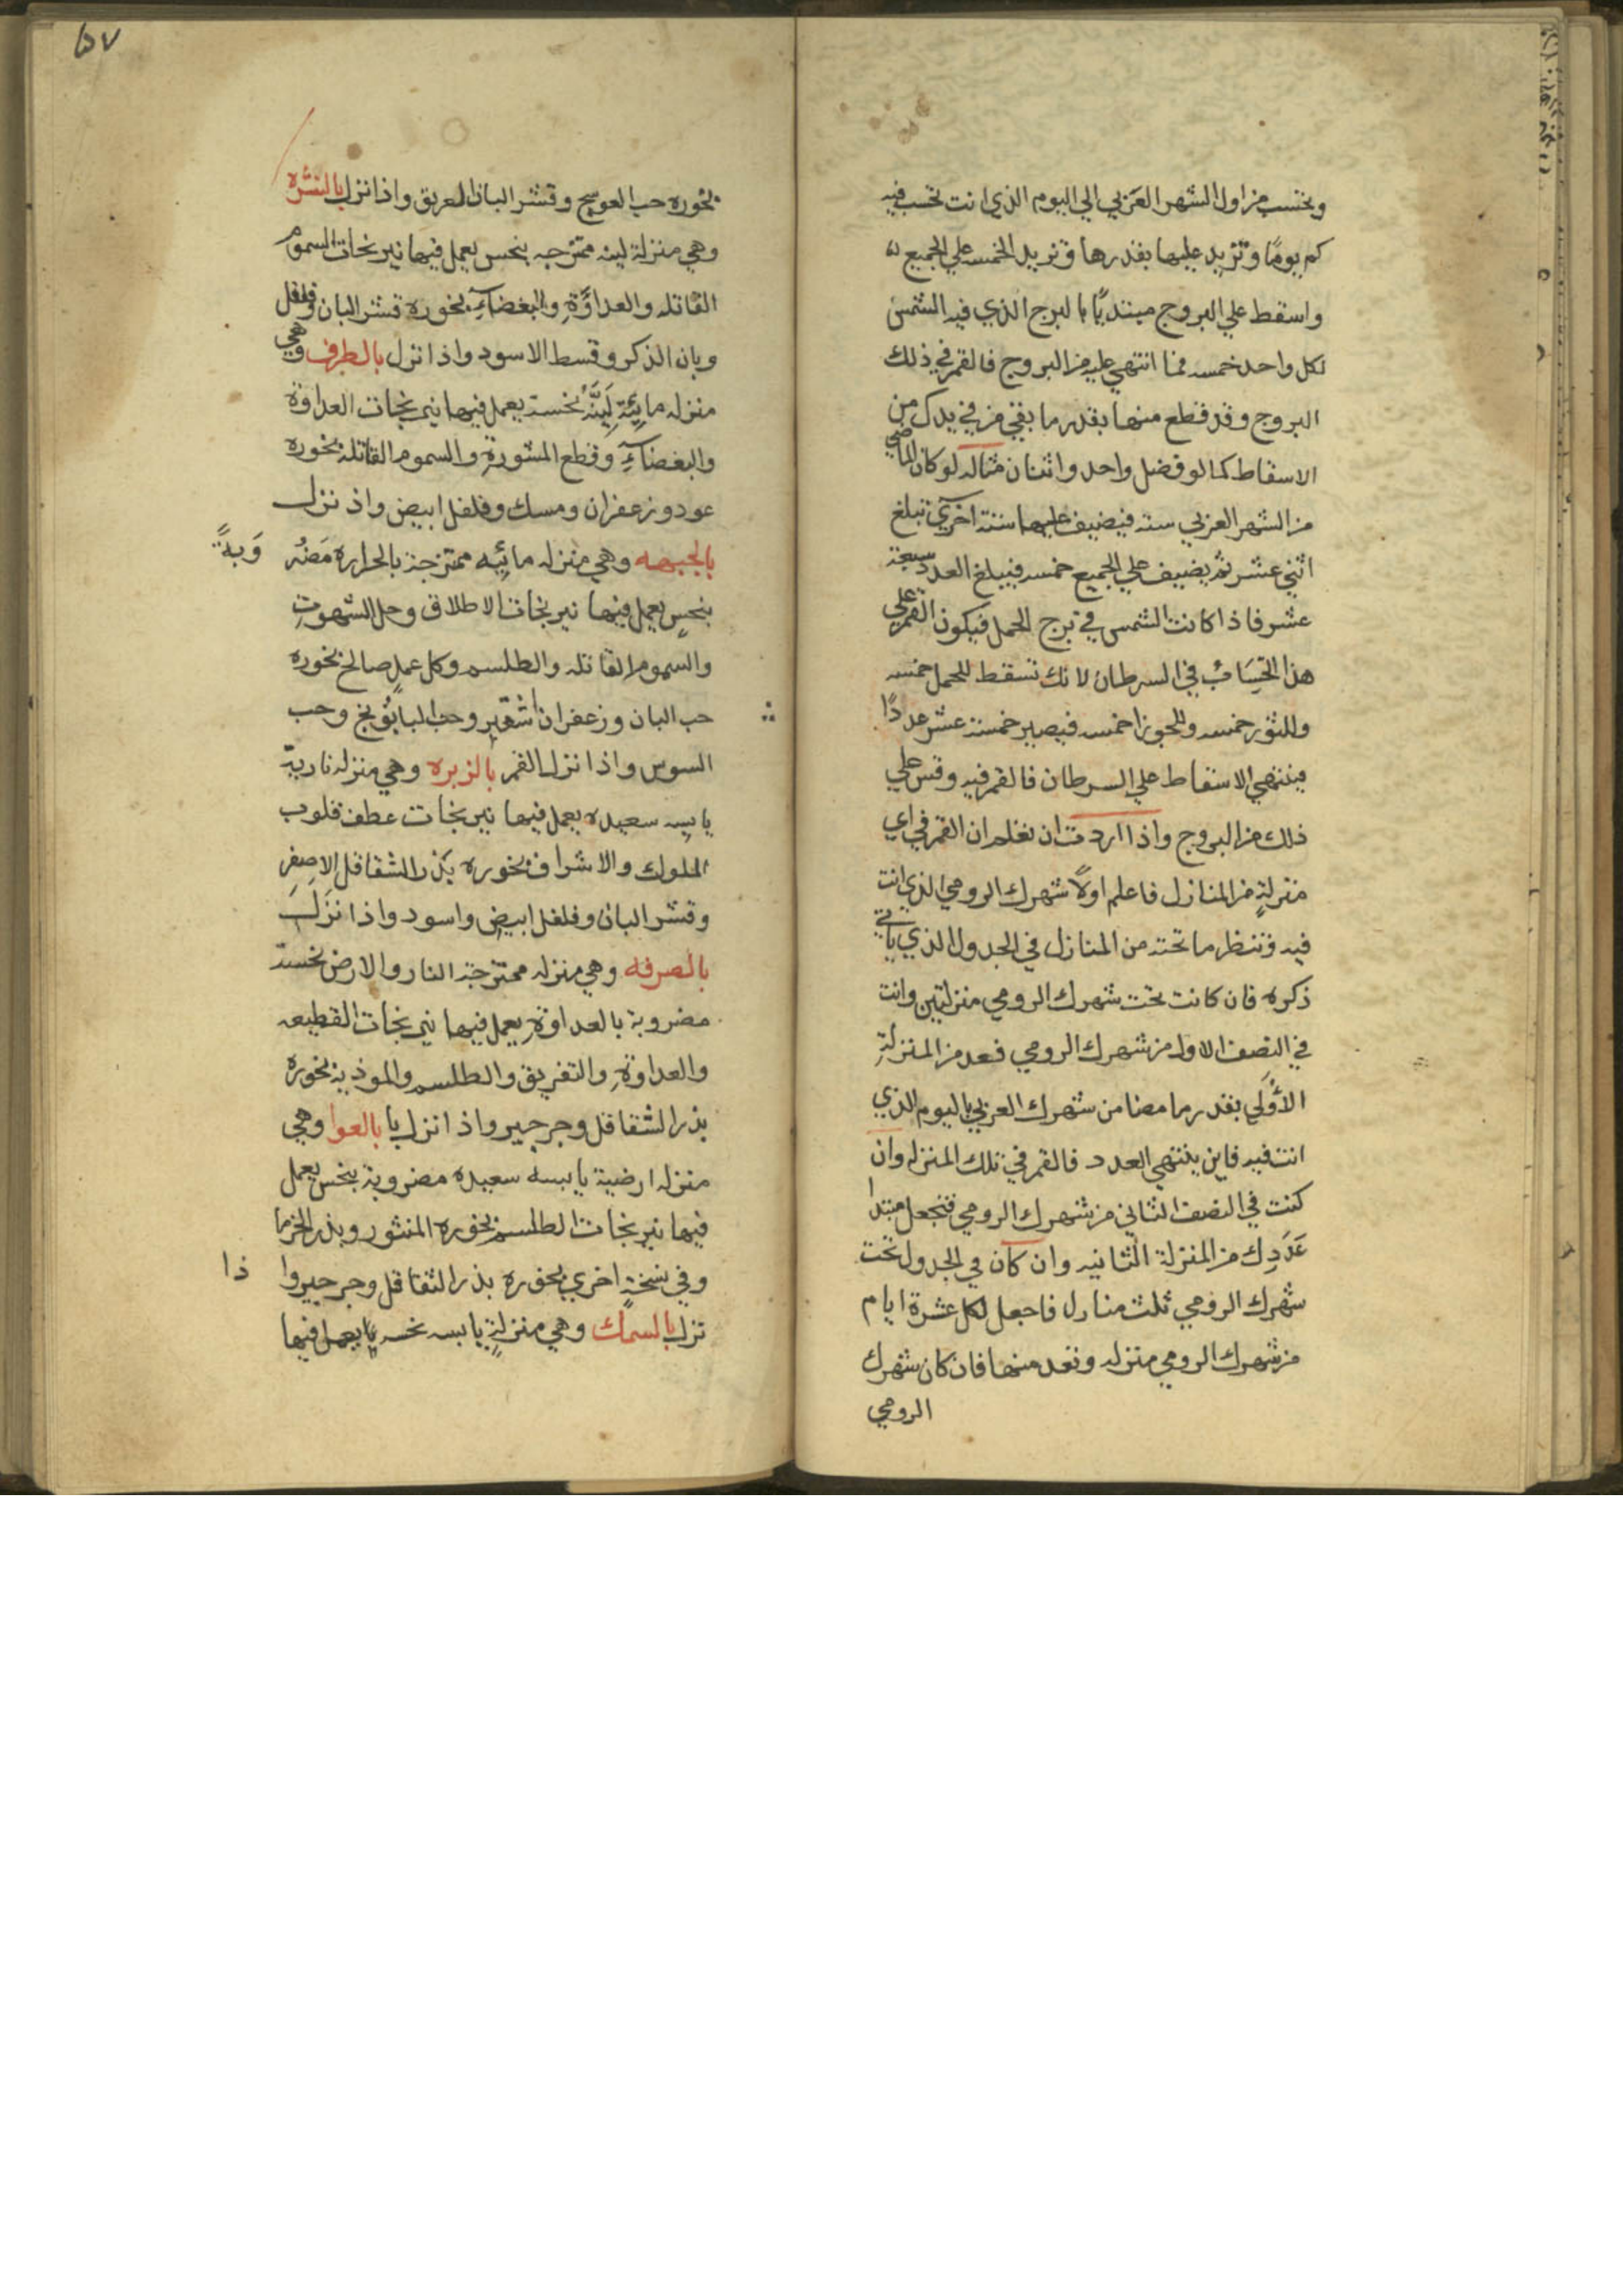 وتحتسب من اول الشهر العربي الي اليوم الذي انت تحسب فيه
كم يومًا وتزيد عليها بقدرها وتزيد الخمسه علي الجميع
واسقط علي البروج مبتديًا بالبرج الذي فيه الشمس
لكل واحد خمسه فما انتهي عليه من البروج فالقمر في ذلك
البروج وقد قطع منها بقدر ما بقي من في يدك من
الاسقاط كما لو فضل واحد واثنان مثاله لو كان الماضي
من الشهر العربي سته فيضيف عليها ستة اخري تبلغ
اثني عشر ثم يضيف علي الجميع خمسه فيبلغ العدد سبعة
عشر فاذا كانت الشمس في برج الحمل فيكون القمر علي
هذا الحِسَابُ في السرطان لانك تسقط للحمل خمسه
وللثور خمسه وللجوزا خمسه فيصير خمسة عشر عددًا
فينتهي الاسقاط علي السرطان فالقمر فيه وقس علي
ذلك من البروج واذا اردت ان تعلم ان القمر في اي
منزلةٍ من المنازل فاعلم اولًا شهرك الرومي الذي انت
فيه وتنظر ما تحته من المنازل في الجدول الذي ياتي
ذكره فان كانت تحت شهرك الرومي منزلتين وانت
في النصف الاول من شهرك الرومي فعد من المنزلةِ
الأُولَي بقدر ما مضا من شهرك العربي باليوم الذي
انت فيه فاين ينتهي العدد فالقمر في تلك المنزله وان
كنت في النصف الثاني من شهرك الرومي فتجعل مبتدا
عَدَدِك من المنزلة الثانيه وان كان في الجدول تحت
شهرك الرومي ثلث منازل فاجعل لكل عشرة ايام
من شهرك الرومي منزله وتعد منها فان كان شهرك
الرومي
٥٧
بخوره حب العوسج وقشر البان العريق واذا نزل بالنثره
وهي منزلة لينه ممتزجه بنحس يعمل فيها نيرنجات السموم
القاتله والعداوةِ والبغضآءِ بخوره قشر البان وفلفل
وبان الذكر وقسط الاسود واذا نزل بالطرف وهي
منزله مايئةٍ لَيِّنَّهُ نحسة يعمل فيها نيرنجات العداوة
والبغضآءِ وقطع المشورةِ والسموم القاتلة بخوره
عود وزعفران ومسك وفلفل ابيض واذ نزل
بالجبهه وهي منزله مائيه ممتزجة بالحراره مَضْر
وَبةً
بنحسٍ يعمل فيها نيرنجات الاطلاق وحل الشهوتِ
والسموم القاتله والطلسم وكل عملٍ صالح بخوره
حب البان وزعفران اشقير وحب البابُونج وحب
السوس واذا نزل القمر بالزبره وهي منزله نارية
يابسه سعيده يعمل فيها نيرنجات عطف قلوب
الملوك والاشراف بخوره بذر الشقاقل الاصفر
وقشر البان وفلفل ابيض واسود واذا نَزَلَ
بالصرفه وهي منزله ممتزجة النار والارض نحسة
مضروبة بالعداوةِ يعمل فيها نيرنجات القطيعه
والعداوةِ والتفريق والطلسم والموذية بخوره
بذر الشقاقل وجرجير واذ انزل با بالعوا وهي
منزله ارضية يابسه سعيده مضروبة بنحس يعمل
فيها نيرنجات الطلسم بخوره المنثور وبذر الخزما
وفي نسخةٍ اخري بخوره بذر الشقاقل وجرجير وا
ذا
نزل بالسماك وهي منزلةٍ يابسه نحسه يعمل فيها